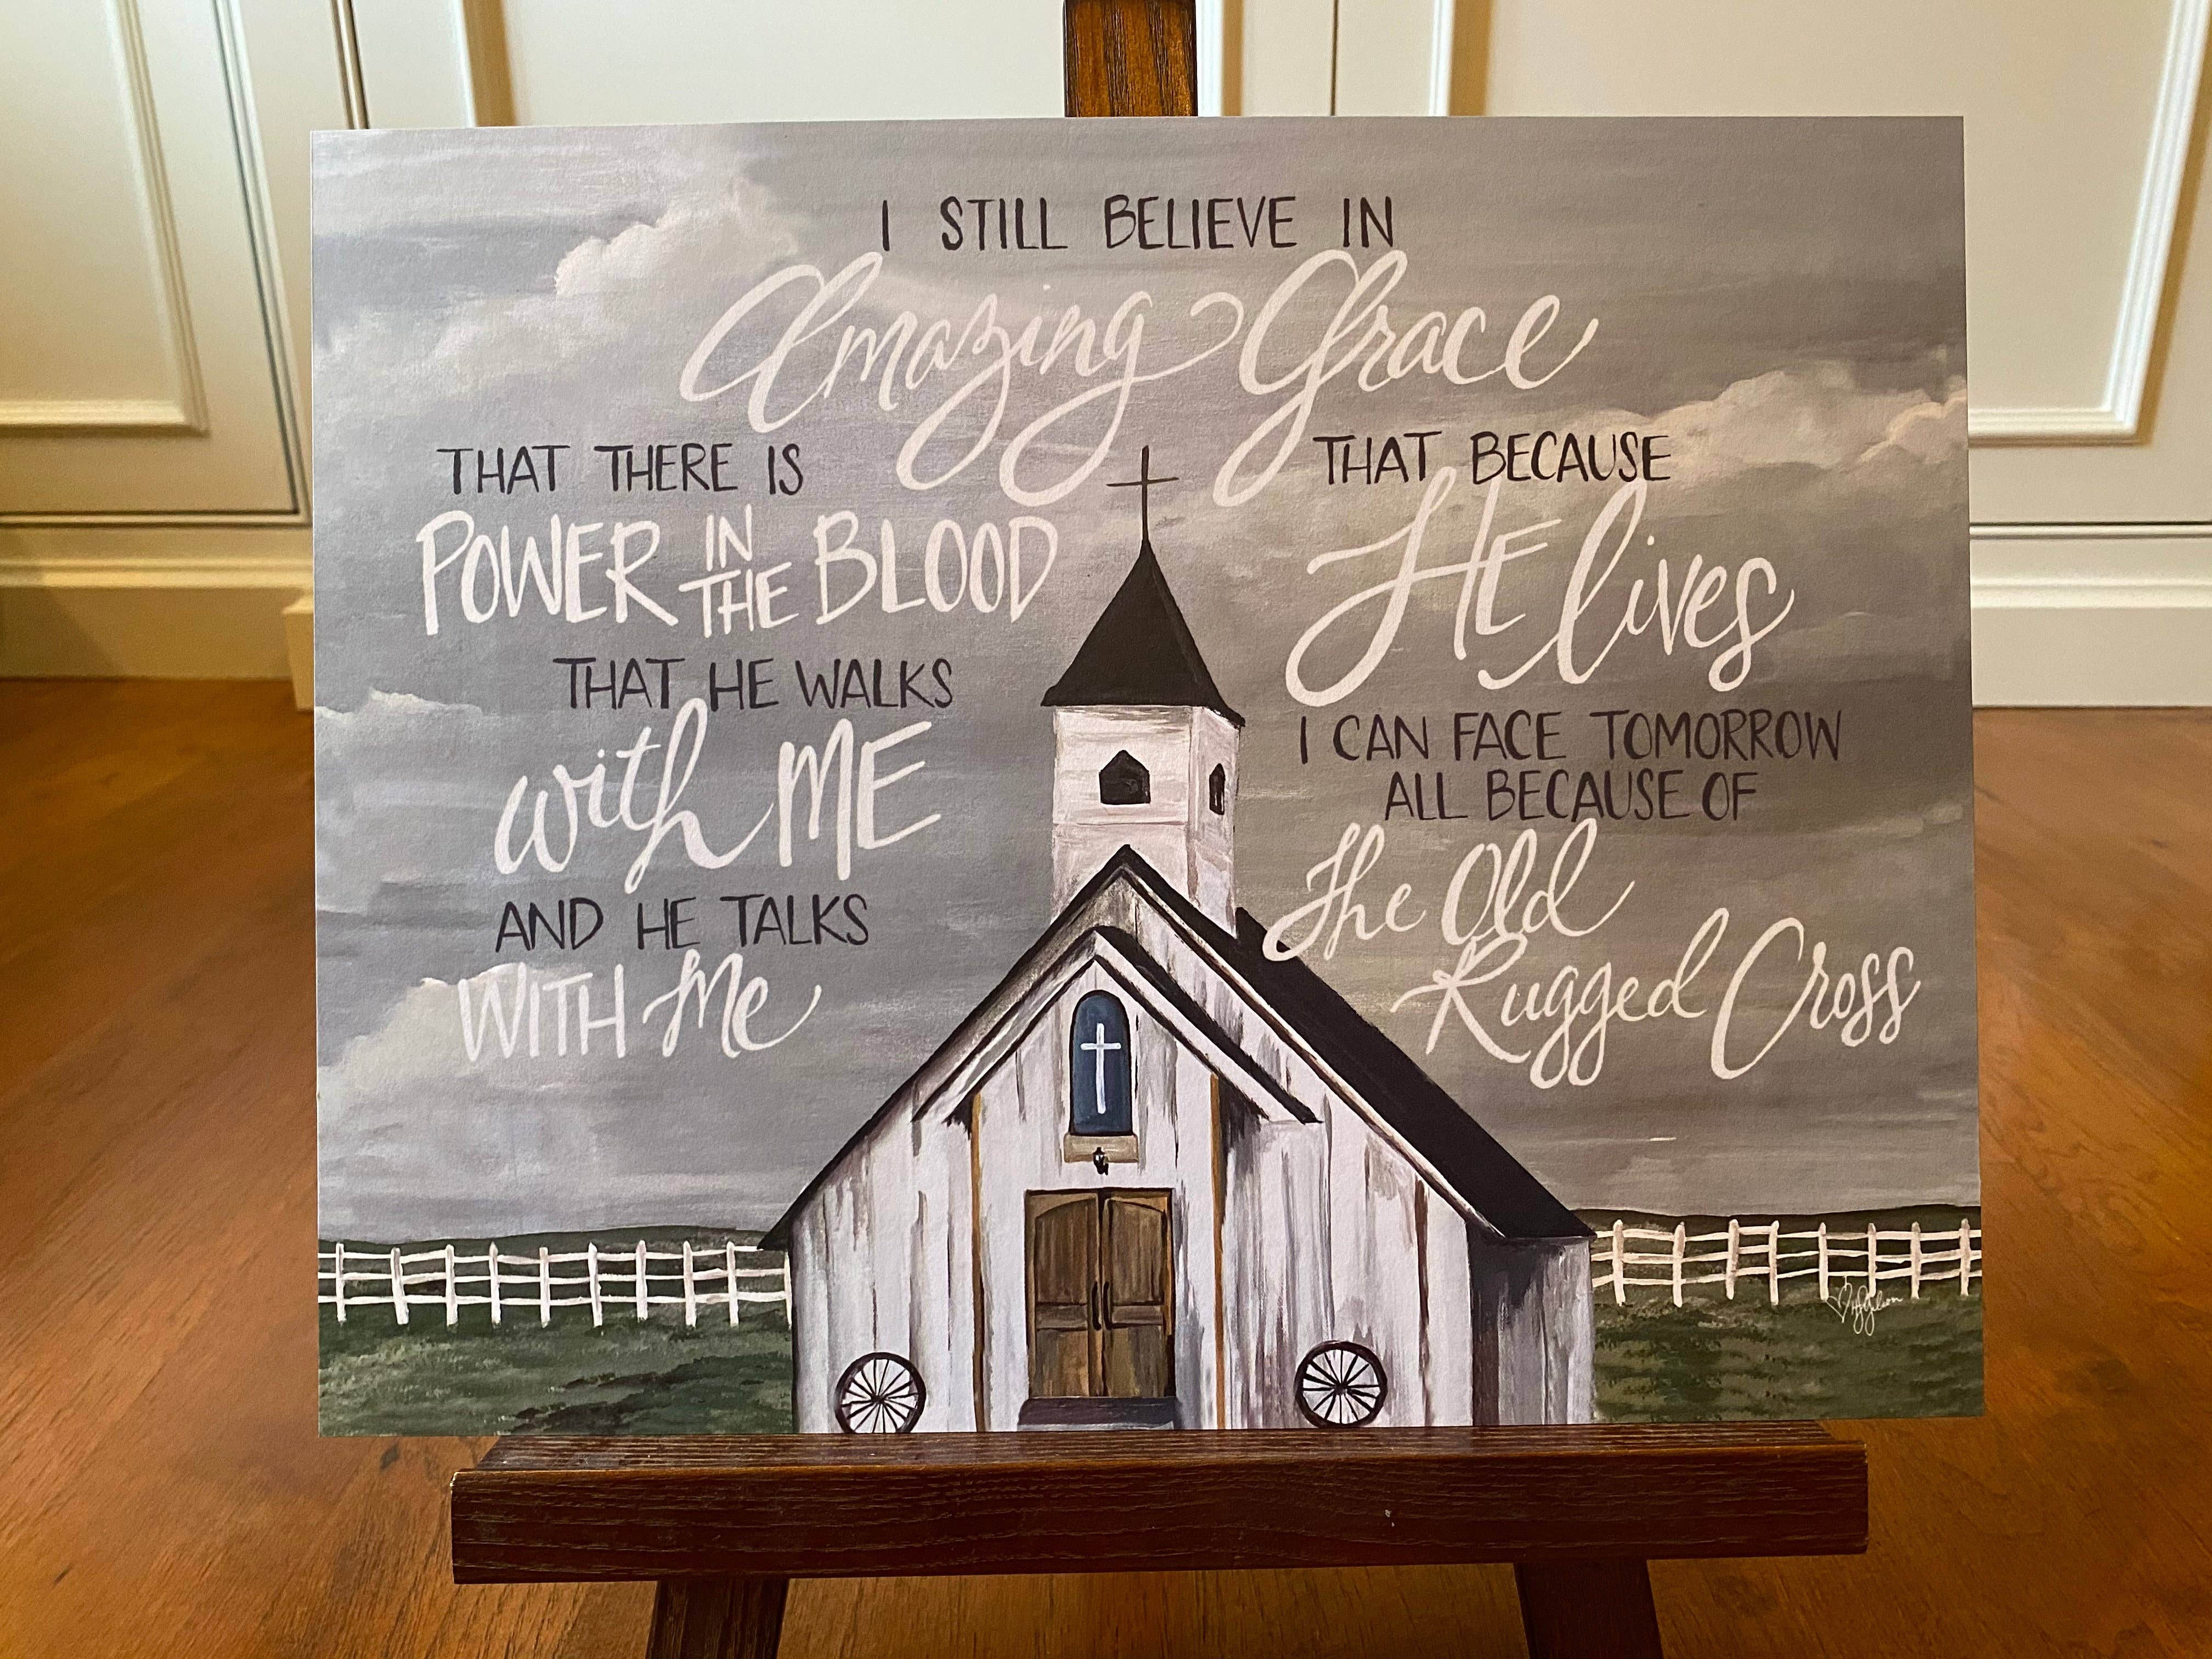 I STILL BELIEVE IN
Amazing Grace
THAT THERE IS
POWER IN THE BLOOD
THAT HE WALKS
with ME
AND HE TALKS
WITH Me
THAT BECAUSE
HE lives
I CAN FACE TOMORROW
ALL BECAUSE OF
The Old
Rugged Cross